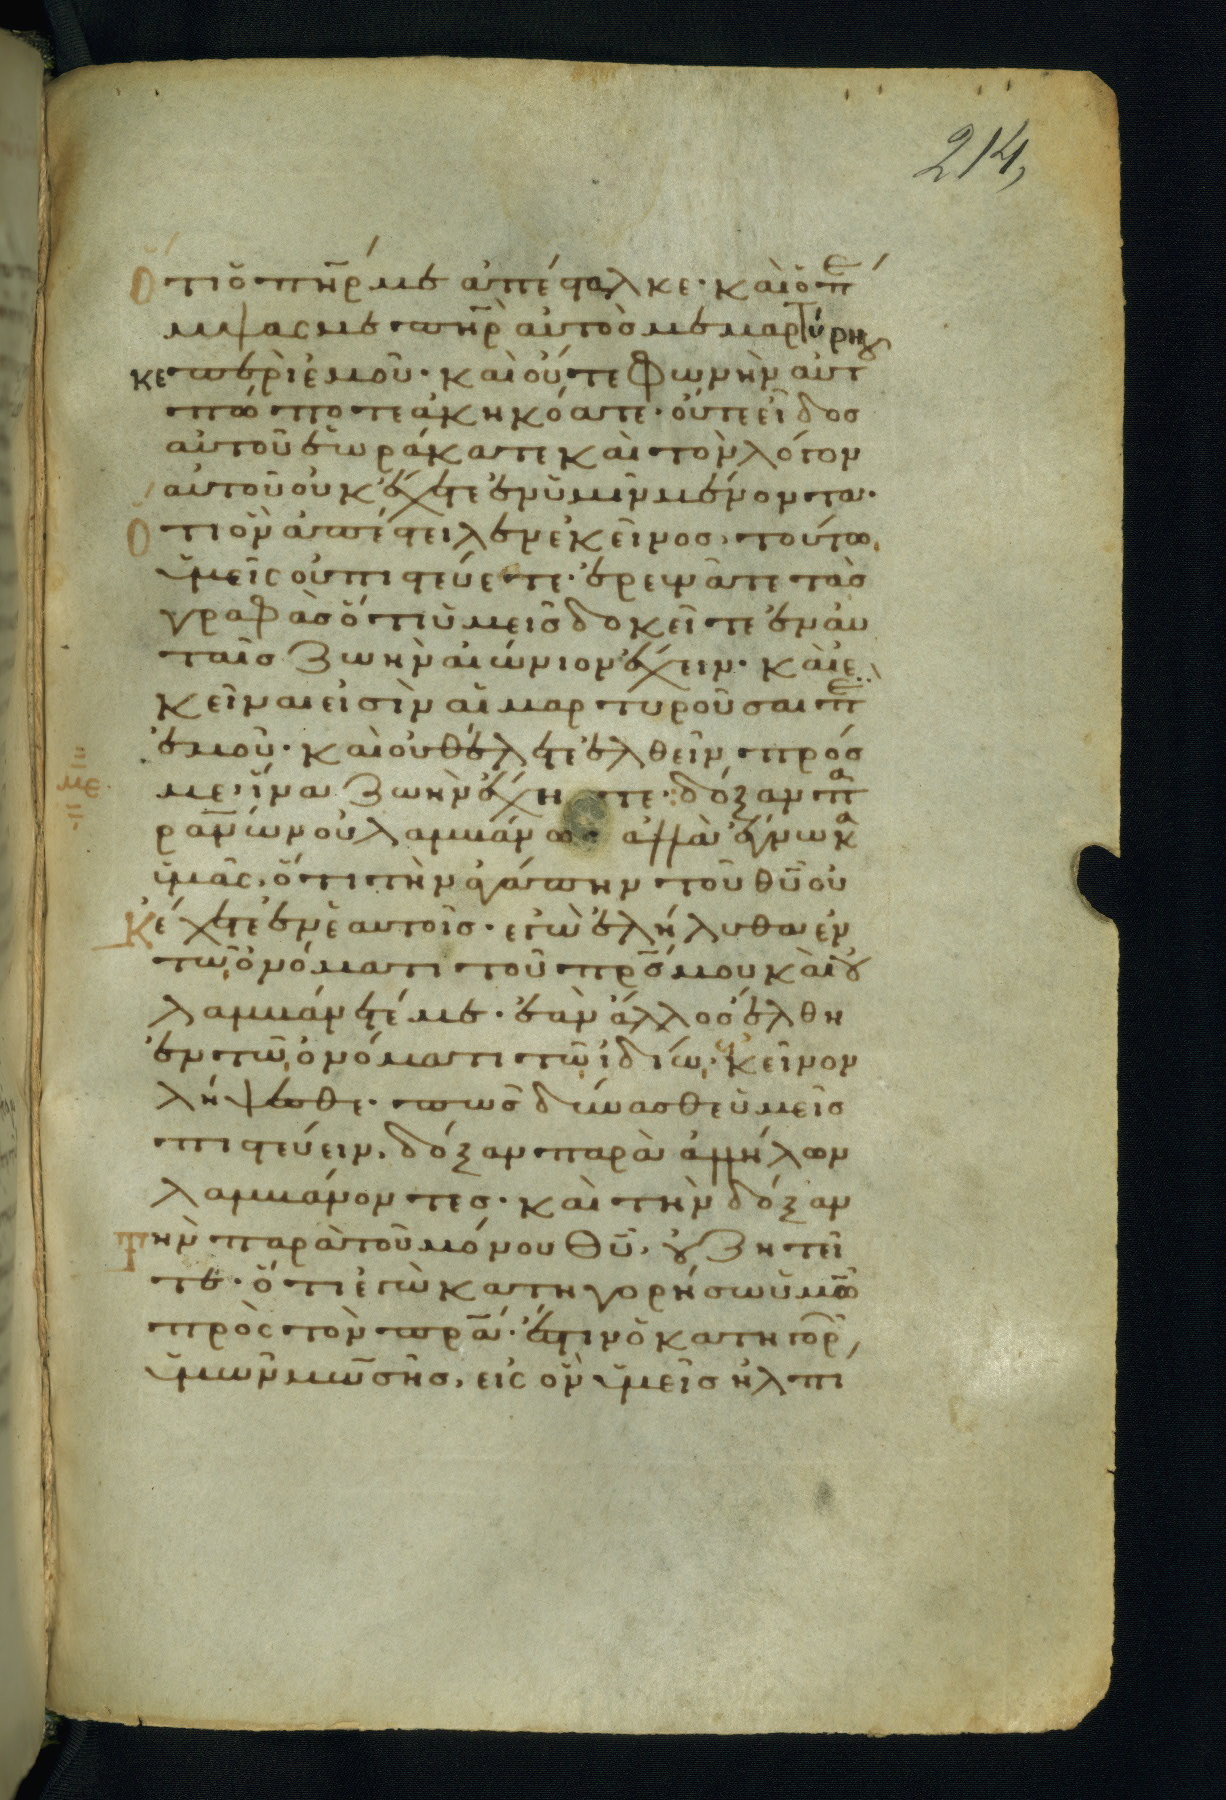 214,
Ὅτι ὁ πη̅ρ με ἀπέσταλκε· καὶ ὁ πέ
μψας με πη̅ρ αὐτὸς μεμαρτύρη
κε περὶ ἐμοῦ· καὶ οὔτε φωνὴν αὐτ
πώποτε ἀκηκόατε· οὔτε εἶδος
αὐτοῦ ἑωράκατε καὶ τὸν λόγον
αὐτοῦ οὐκ ἔχετε ἐν ὑμῖν μένοντα·
Ὅτι ὃν ἀπέστειλεν ἐκεῖνος, τούτω
ὑμεῖς οὐ πιστεύετε· ἐρευνᾶτε τὰς
γραφὰς ὅτι ὑμεῖς δοκεῖτε ἐν αὐ
ταῖς ζωὴν αἰώνιον ἔχειν· καὶ ἐ
κεῖναι εἰσὶν αἱ μαρτυροῦσαι πε
ἐμοῦ· καὶ οὐ θέλετε ἐλθεῖν πρός
με· ἵνα ζωὴν ἔχητε· δόξαν πα
με
ρὰ ἀν̅ων οὐ λαμβάνω ἀλλὰ ἔγνωκα
ὑμᾶς, ὅτι τὴν ἀγάπην τοῦ θυ̅ οὐ
κ ἔχετε ἐν ἑαυτοῖς· ἐγὼ ἐλήλυθα ἐν
τῶ ὀνόματι τοῦ πρ̅ς μου καὶ οὐ
λαμβάνετέ με· ἐὰν ἄλλος ἔλθη
ἐν τῶ ὀνόματι τῶ ἰδίω, ἐκεῖνον
λήψεσθε· πῶς δύνασθε ὑμεῖς
πιστεύειν, δόξαν παρὰ ἀλλήλων
λαμβάνοντες· καὶ τὴν δόξαν
τὴν παρὰ τοῦ μόνου θυ̅, οὐ ζητεῖ
τε· ὅτι ἐγὼ κατηγορήσω ὑμῶ
πρὸς τὸν πρ̅α· ἔστιν ὁ κατηγορ
ὑμῶν μωσῆς, εἰς ὃν ὑμεῖς ἠλπι